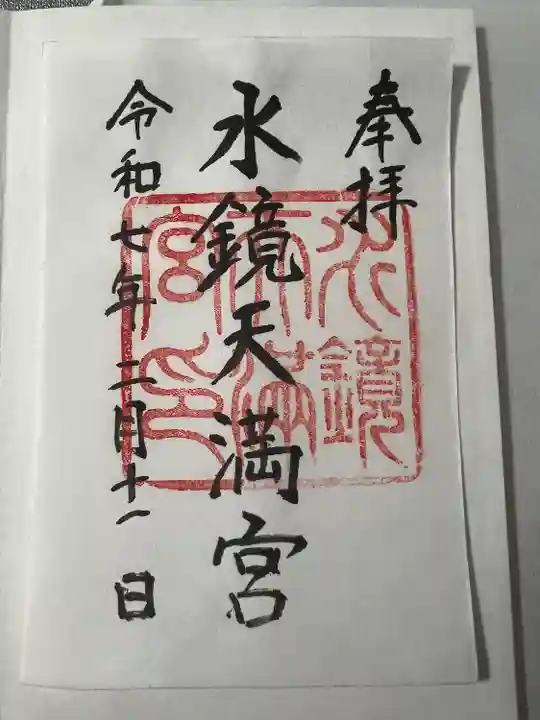 奉拝
水鏡天満宮
令和七年二月十一日
水鏡
天満
宮印